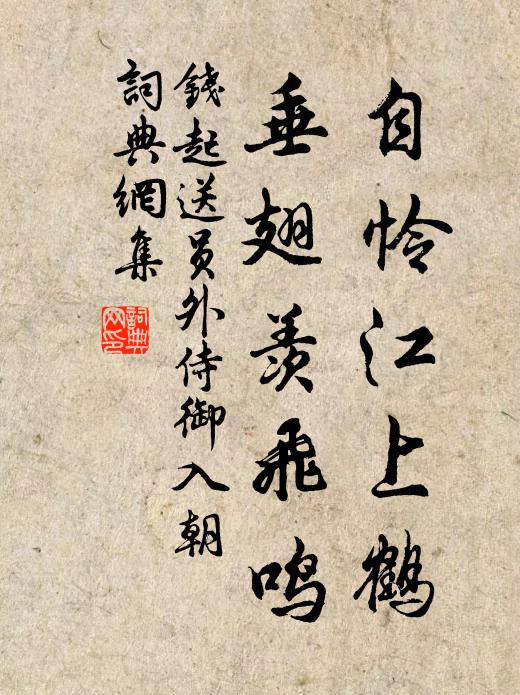 自怜江上鹤
垂翅羡飛鸣
錢起送员外侍御入朝
詞典網集
詞典网印